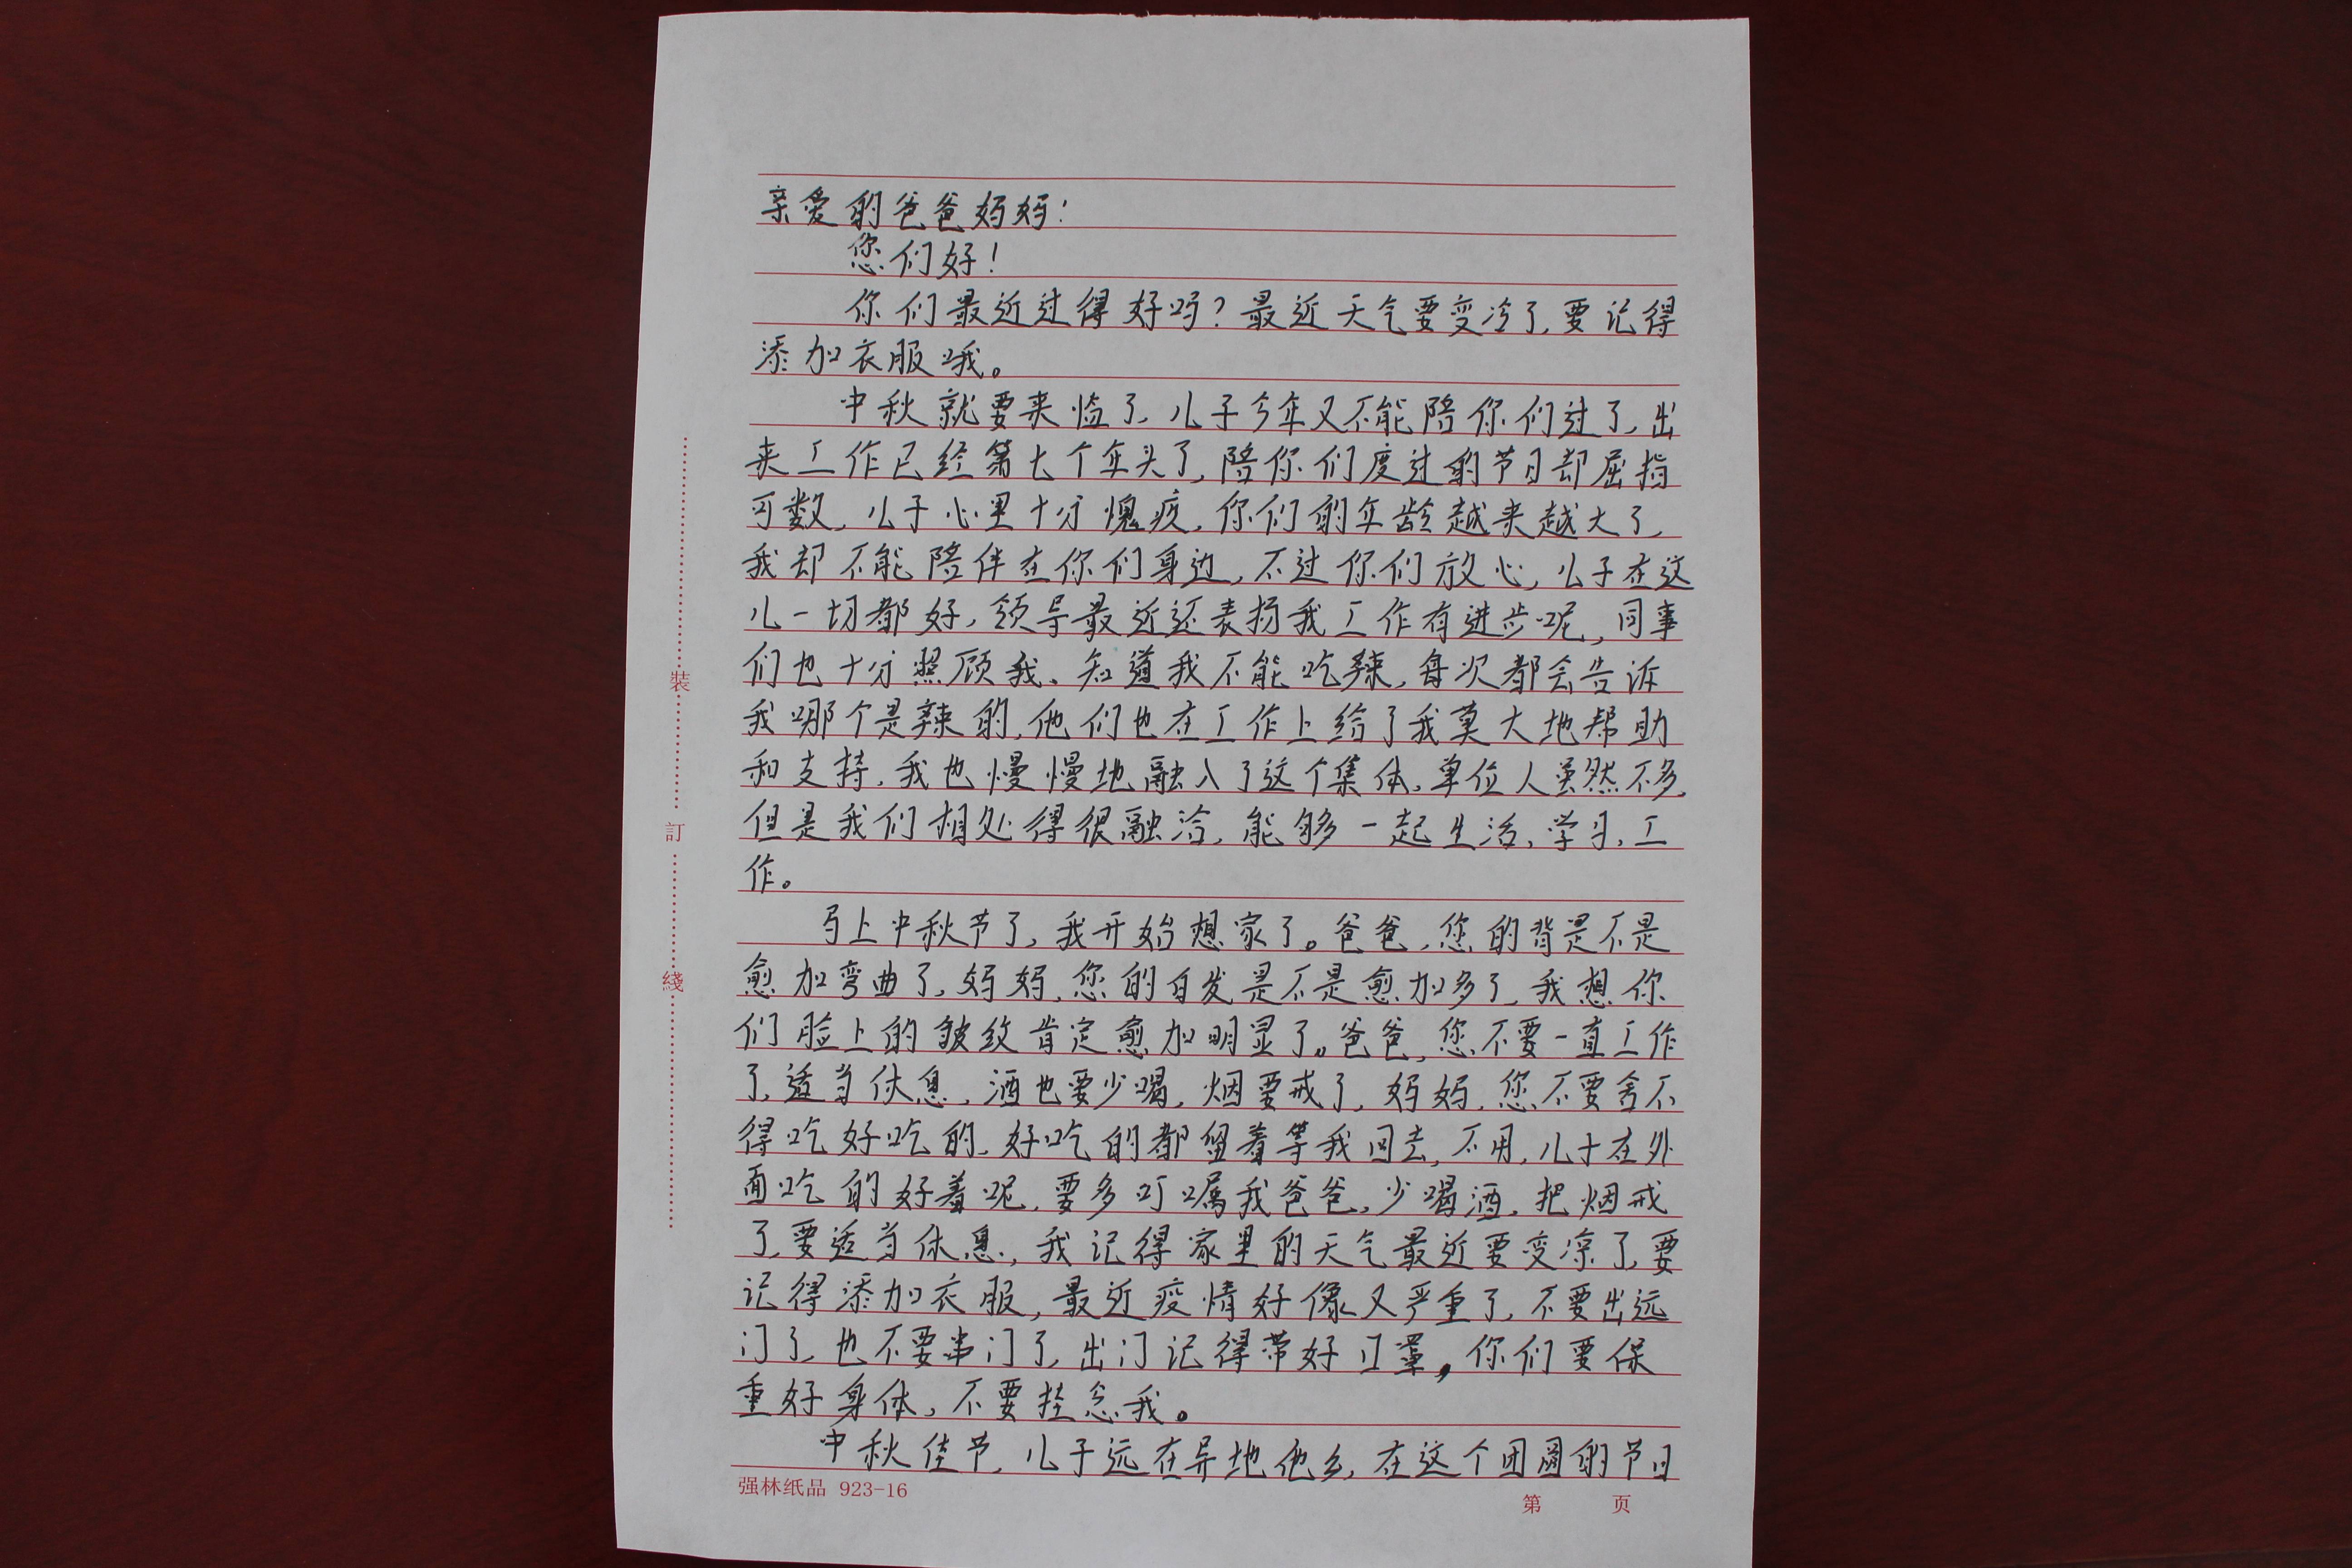 亲爱的爸爸妈妈：
您们好！
你们最近过得好吗？最近天气要变冷了，要记得
添加衣服哦。
中秋就要来临了，儿子今年又不能陪你们过了，出
来工作已经第七个年头了，陪你们度过的节日却屈指
可数，儿子心里十分愧疚，你们的年龄越来越大了，
我却不能陪伴在你们身边，不过你们放心，儿子在这
儿一切都好，领导最近还表扬我工作有进步呢，同事
们也十分照顾我、知道我不能吃辣，每次都会告诉
我哪个是辣的，他们也在工作上给了我莫大地帮助
和支持，我也慢慢地融入了这个集体，单位人虽然不多，
但是我们相处得很融洽，能够一起生活、学习、工
作。
马上中秋节了，我开始想家了。爸爸，您的背是不是
愈加弯曲了，妈妈，您的白发是不是愈加多了，我想你
们脸上的皱纹肯定愈加明显了。爸爸，您不要一直工作
了，适当休息，酒也要少喝，烟要戒了，妈妈，您不要舍不
得吃好吃的，好吃的都留着等我回去，不用，儿子在外
面吃的好着呢，要多叮嘱我爸爸，少喝酒，把烟戒
了，要适当休息，我记得家里的天气最近要变凉了，要
记得添加衣服，最近疫情好像又严重了，不要出远
门了，也不要串门了，出门记得带好口罩，你们要保
重好身体，不要挂念我。
中秋佳节，儿子远在异地他乡，在这个团圆的节日
强林纸品 923-16
第 页
裝
訂
綫